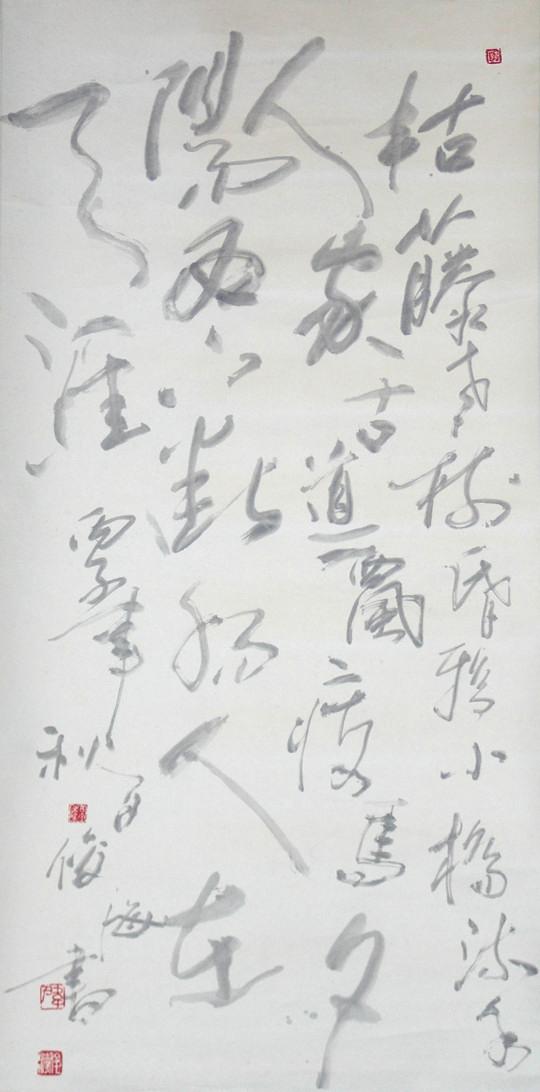 枯藤老樹昏鴉小橋流水
人家古道西風瘦馬夕
陽西下斷腸人在
天涯
丙子年
秋月俊海書